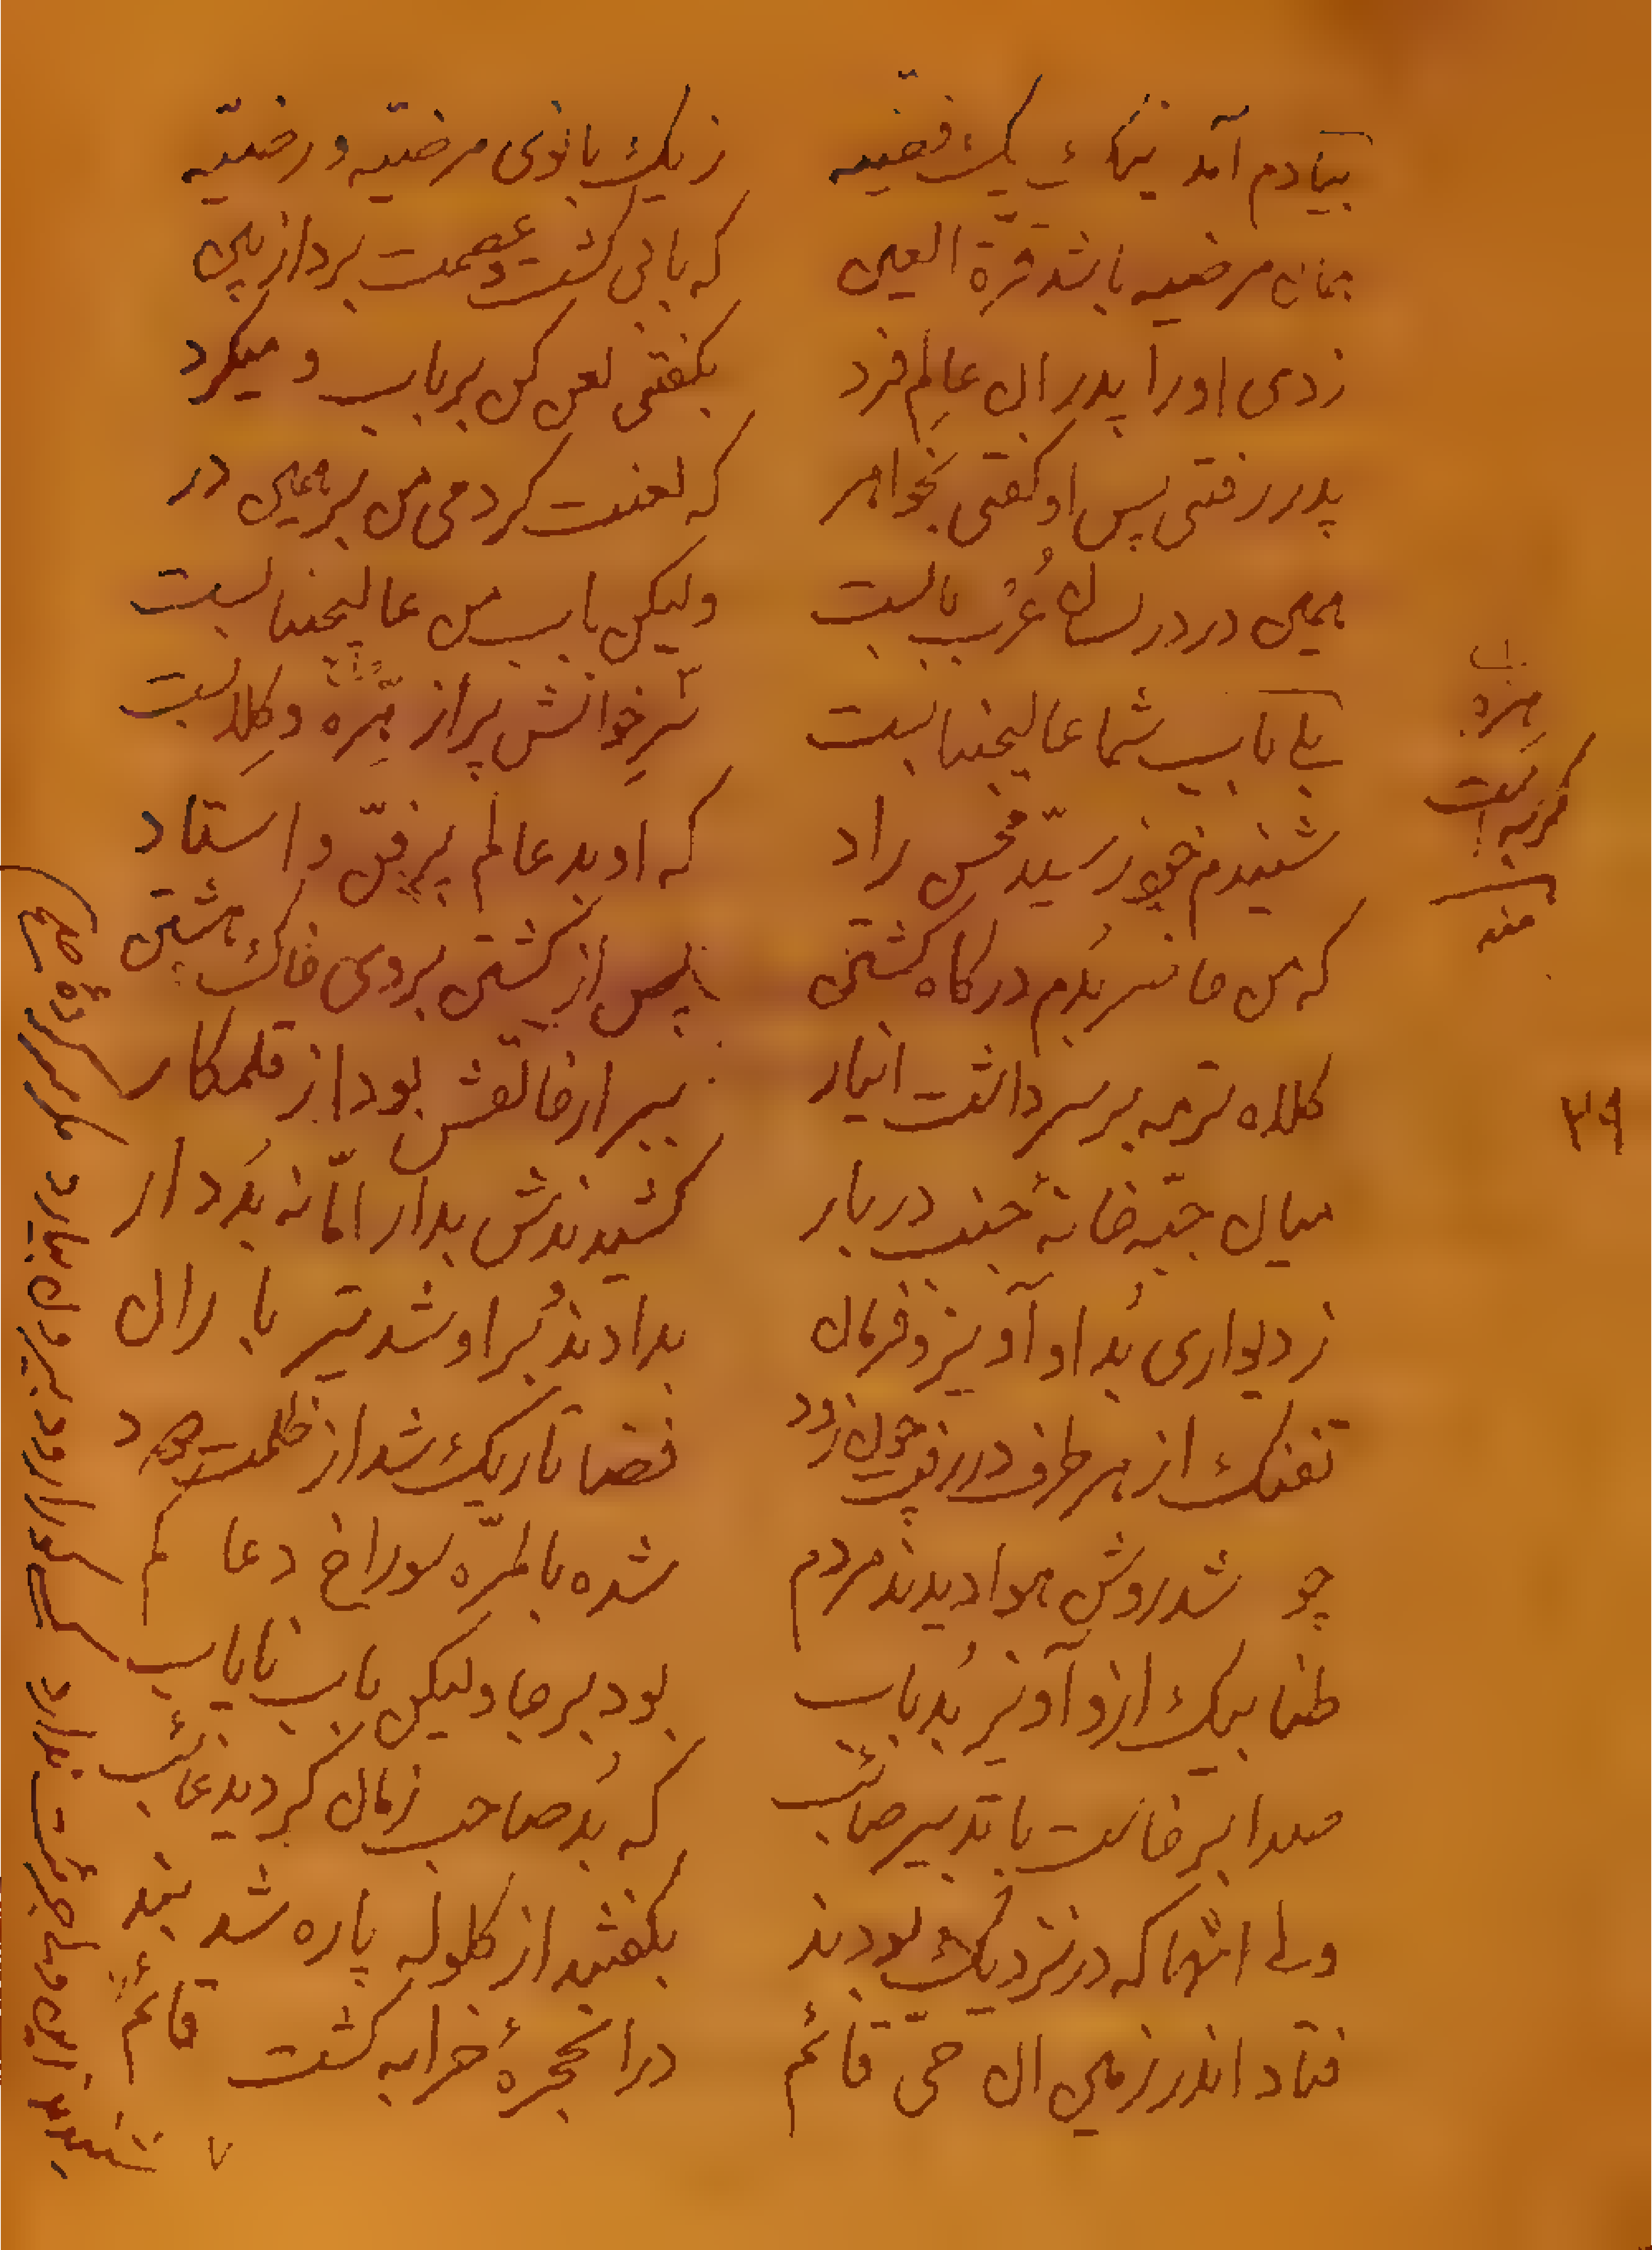 بیادم آمد اینک یک قضیه
ز یک بانوی مرضیه و رضیه
همان مرضیه باشد قرّة العین
که بابی گشت و عصمت برد از بین
زدی او را پدر آن عالِم فرد
بگفتی لعن کن بر باب و میکرد
پدر رفتی پس او گفتی بخواهر
که لعنت کردمی من بر همین در
همین در در لسان عُرب بابست
ولیکن باب من عالیجنابست
بلی باب شما عالیجنابست
سرِ خوانش پر از هِرّه و کِلابست
شنیدم خود ز سیّد محسن راد
که او بد عالم پر فنّ و استاد
که من حاضر بُدم در گاه کشتن
پس از کشتن بروی خاک هشتن
کلاه ترمه بر سر داشت انبار
ببر ارخالقش بود از قلمکار
میان جبّه خانهٔ جنب دربار
کشیدندش بدار امّا نه بَر دار
ز دیواری بُد او آویز و فرمان
بدادند بُر او شد تیر باران
تفنگ از هر طرف در رفت چون زود
فضا تاریک شد از ظلمت دود
چو شد روشن هوا دیدند مردم
شده بالمرّه سوراخ دعا گم
طنابیک ازو آویز بُد باب
بود بر جا ولیکن باب نایاب
صدا برخاست با تدبیر صائب
که بُد صاحب زمان گردید غائب
ولی آنها که در نزدیک بودند
بگفتند از گلوله پاره شد بند
فتاد اندر زمین آن حیّ قائم
در آن حجرهٔ خرابه گشت قائم
هرّه
گربه است
منه
۳۹